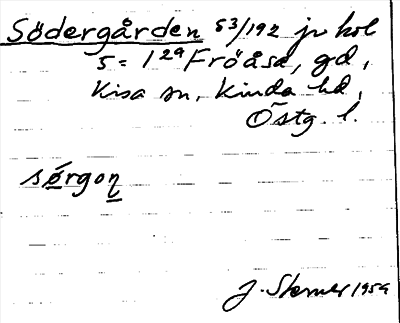 Södergården 53/192 jr kol
5 = 1²⁹ Fröåsa, gd,
Kisa sn, Kinda hd,
Östg. l.
sørgoɳ
J. Sterner 1959